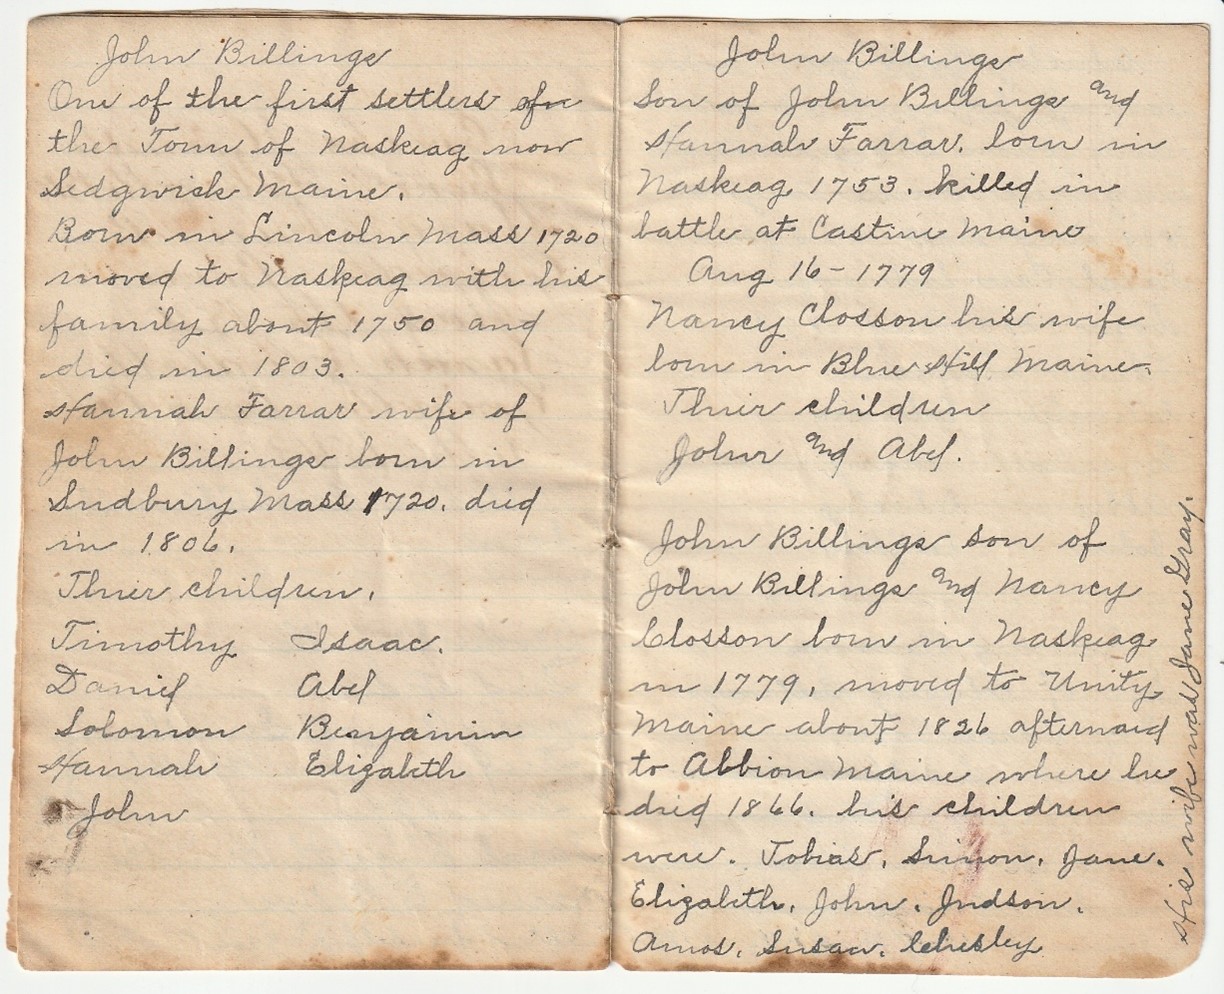 John Billings
One of the first settlers of
the Town of Naskeag now
Sedgwick Maine.
Born in Lincoln Mass 1720
moved to Naskeag with his
family about 1750 and
died in 1803.
Hannah Farrar wife of
John Billings born in
Sudbury Mass 1720. died
in 1806.
Thier children.
Timothy Isaac.
Daniel Abel
Solomon Benjamin
Hannah Elizabeth
John
John Billings
Son of John Billings and
Hannah Farrar. born in
Naskeag 1753. killed in
battle at Castine Maine
Aug 16-1779
Nancy Closson his wife
born in Blue Hill Maine.
Thier children
John and Abel.
John Billings son of
John Billings and Nancy
Closson born in Naskeag
in 1779, moved to Unity
Maine about 1826 afterward
to Abbion Maine where he
died 1866. his children
were. Tobias. Simon. Jane.
Elizabeth. John. Judson.
Amos. Susan. Chesley
His wife was Jane Gray.